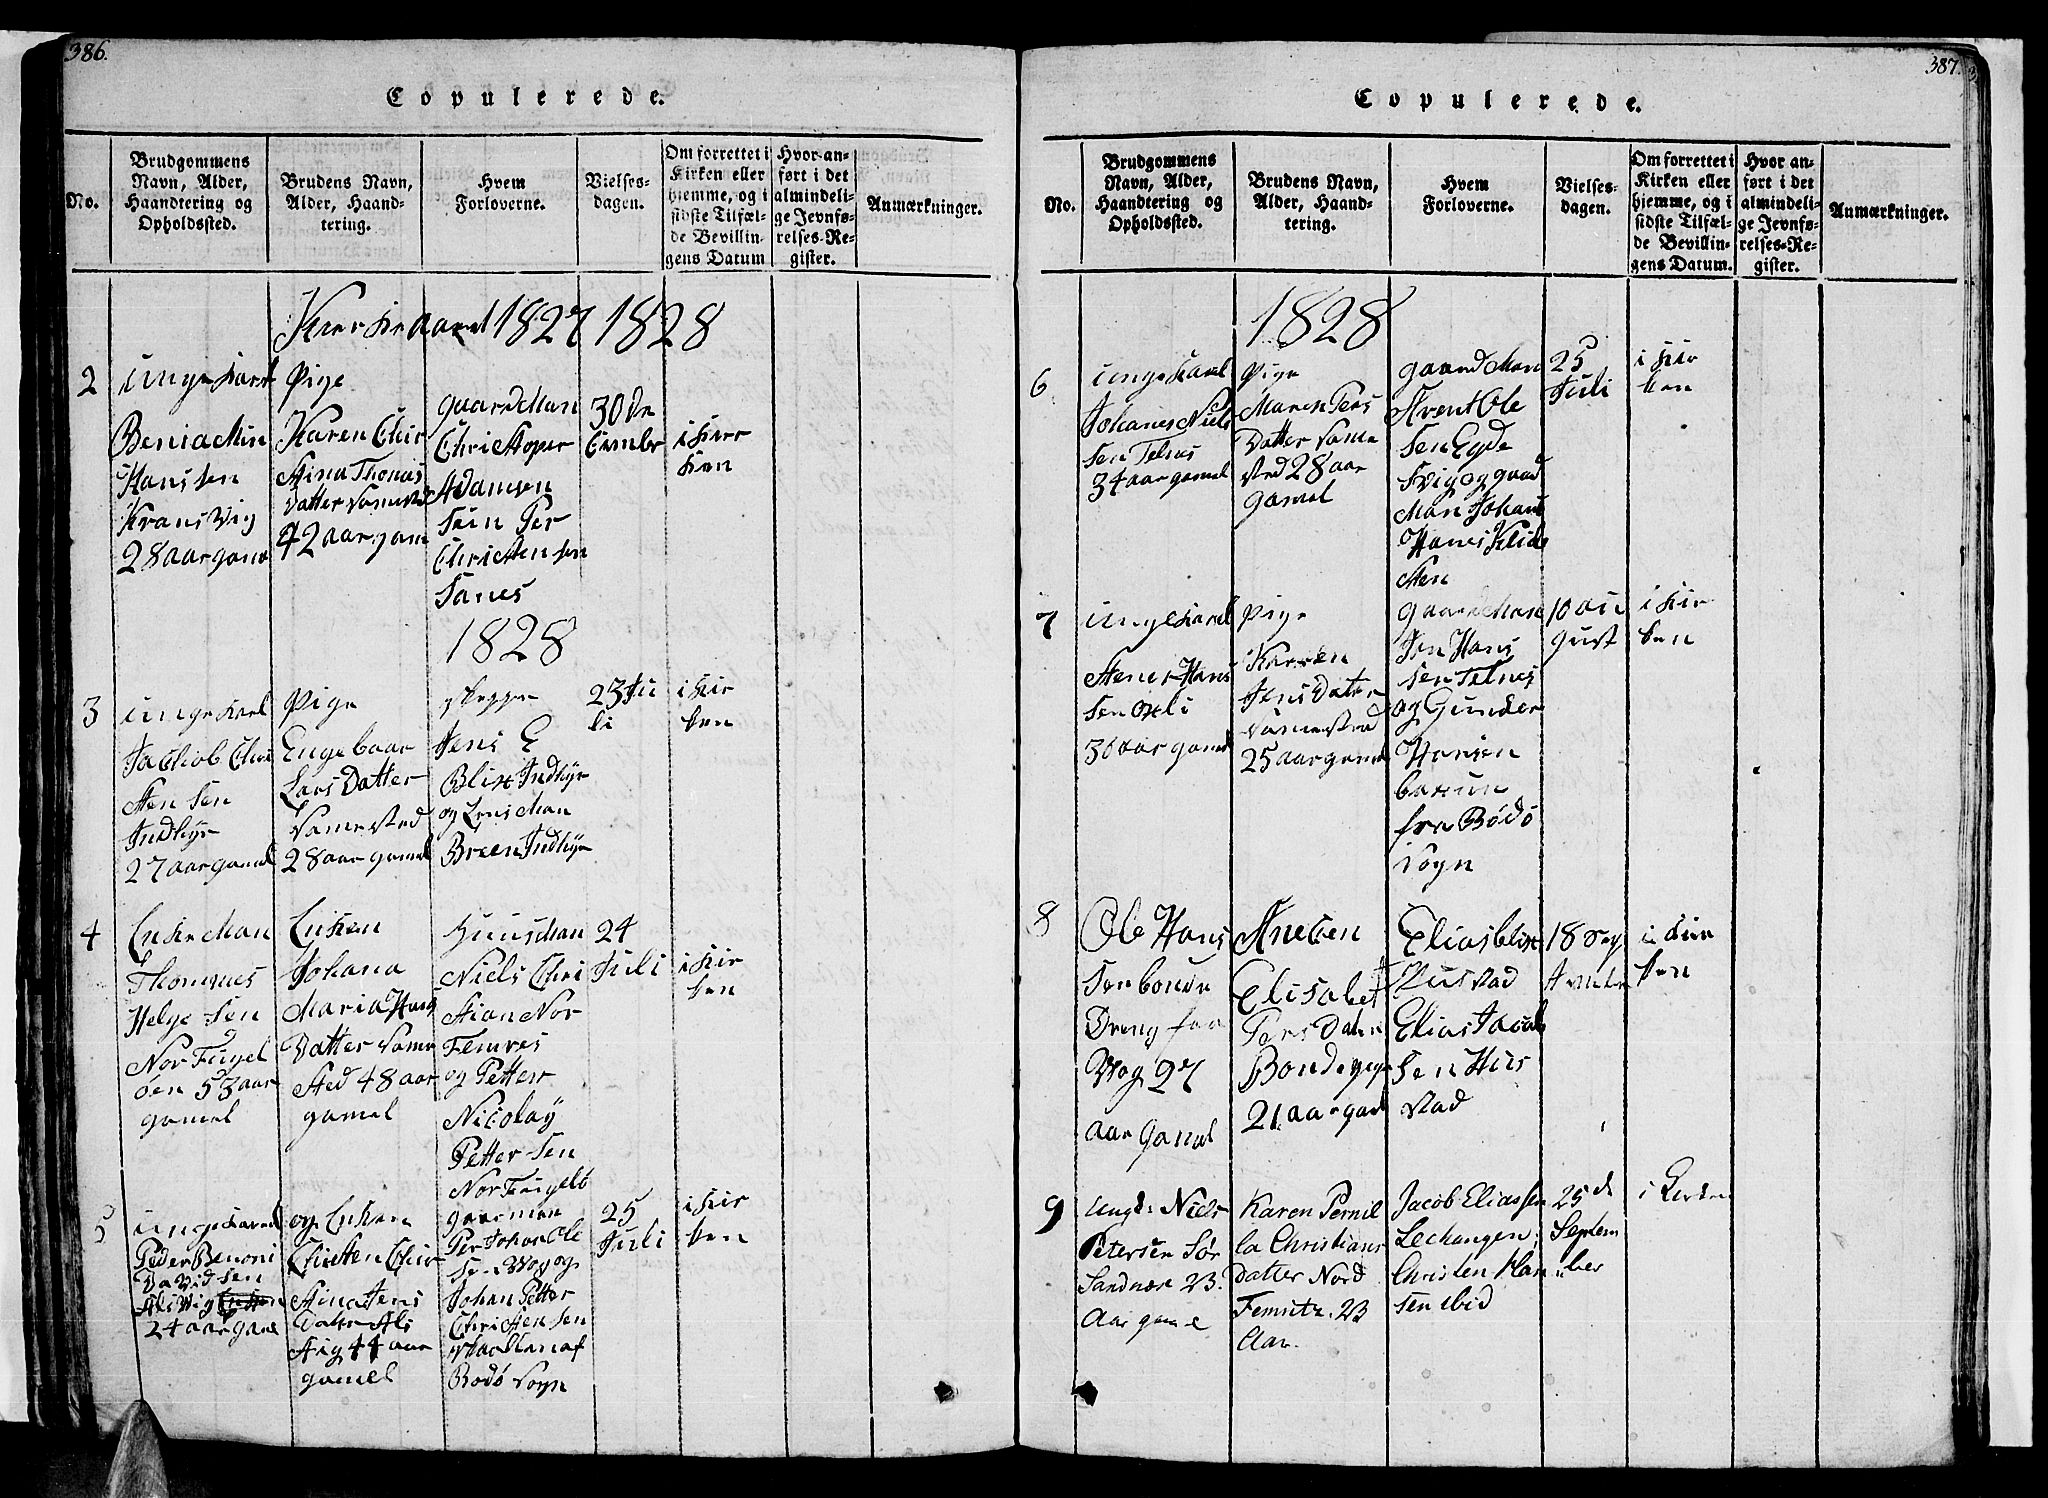 386.
Copulerede.
No.
Brudgommens
Navn, Alder,
Haandtering og
Opholdssted.
Brudens Navn,
Alder, Haand-
tering.
Hvem
Forloverne.
Vielses-
dagen.
Om forrettet i
Kirken eller
hjemme, og i
sidste Tilfæl-
de Bevillin-
gens Datum
Hvor an-
ført i det
almindeli-
ge Jevnfø-
relses-Re-
gister.
Anmærkninger.
Kierke aaret 1827 1828
2
unge karl
Beniamin
Hans sen
Kransvig
28 aar gamel
Pige
Karen Chir
stina Thomas
datter samested
42 aar gam
gaardman
Christoper
Adamsen
Sein Per
Christensen
Sanes
30 De
Cember
i kier
ken
1828
3
unge karl
Jachob Chri
sten sen
Indhyr
27 aar gamel
Pige
Engebaar
Lars Datter
samested
28 aar gamel
skeppr
Jens E
Blix Indhyr
og Lensman
Breen Indhyr
23 Ju
li
i kir
ken
4
Enke Man
Thommes
Helge sen
Nor Fugel
öen 53 aar
gamel
Enken
Johana
Maria Hans
Datter same
sted 48 aar
gamel
Huusman
Niels Chri
stian Nor
Femres
og Petter
Nicolay
Petter sen
Nor Fugelö
24
Juli
i kir
ken
5
unge karl
Peder Benoni
David sen
Alsvig
24 aar gamel
og Enken
Chirsten Chir
stina Jens
datter Als
vig 44 aar
gamel
gaarman
Per Johan Ole
sen Wog og
Johan Petter
Christen sen
af
Bodö sogn
25
Juli
i kir
ken
387.
Copulerede.
No.
Brudgommens
Navn, Alder,
Haandtering og
Opholdssted.
Brudens Navn,
Alder, Haand-
tering.
Hvem
Forloverne.
Vielses-
dagen.
Om forrettet i
Kirken eller
hjemme, og i
sidste Tilfæl-
de Bevillin-
gens Datum.
Hvor an-
ført i det
almindeli-
ge Jevnfø-
relses-Re-
gister.
Anmærkninger.
1828
6
unge karl
Johanes Niels
sen Telnes
34 aar gamel
Pige
Maren Pers
Datter same
sted 28 aar
gamel
gaardman
Arent Ole
sen Egde
svig og gaard
man Johans
Hanes Klide
sten
25
Juli
i kir
ken
7
unge karl
Stener Hans
sen Oxli
36 aar gamel
Pige
Karren
Jens Dater
samested
25 aar gamel
gaardman
Jon Hans
sen Telnes
og Gunder
Hansen
fra Bödö
sogn
10 au
gust
i kir
ken
8
Ole Hans
sen bonde
Dreng fra
Wog 27
aar gamel
Anechen
Elisabet
Pers Dater
Bonde pige
21 aar gaml
Elias blix
Hustad
Elias Jacob
sen Hus
stad
18 Sep
tember
i kir
ken
9
Ungk. Niels
Petersen Sør
Sandnæs 23.
Aar gamel
Karen Pernil
la Christians
datter Nord
Femritz. 23
Aar.
Jacob Eliassen
Lechangen;
Christen Han
sen ibid
25de
Septem
ber
i Kirken